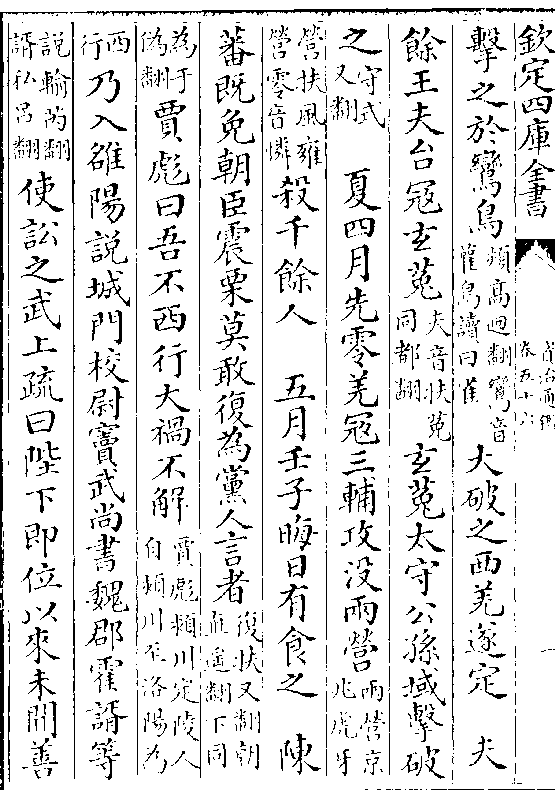 欽定四庫全書 資治通鑑 卷五十六 一
擊之於鸞鳥熲高迥翻鸞音雚鳥讀曰雀大破之西羌遂定 夫
餘王夫台冦玄菟夫音扶菟同都翻玄菟太守公孫域擊破
之守式又翻 夏四月先零羌冦三輔攻没兩營兩營京兆虎牙
營扶風雍營零音憐殺千餘人 五月壬子晦日有食之 陳
蕃既免朝臣震栗莫敢復為黨人言者復扶又翻朝直遥翻下同
為于偽翻賈彪曰吾不西行大禍不解賈彪潁川定陵人自潁川至洛陽為
西行乃入雒陽説城門校尉竇武尚書魏郡霍諝等
説輸芮翻諝私呂翻使訟之武上疏曰陛下即位以來未聞善